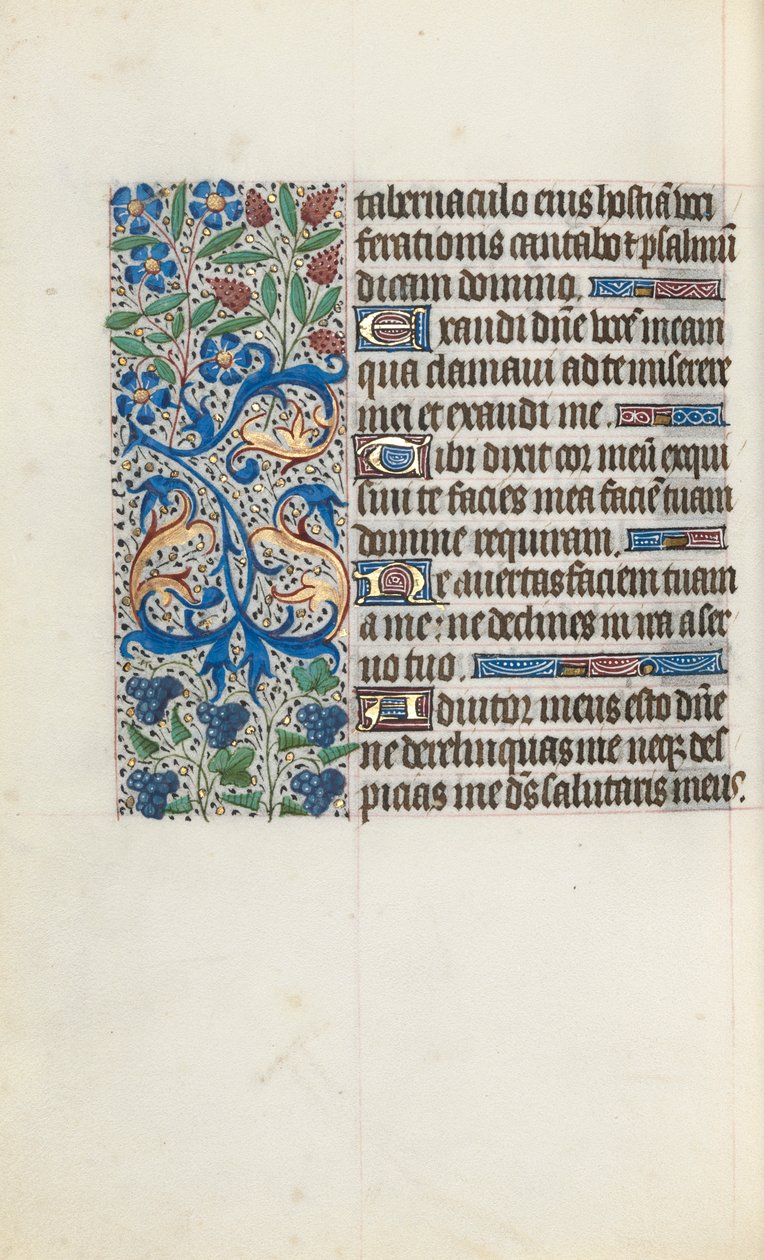 tabernaculo eius hostiā voci
ferationis cantabo ⁊ psalmū
dicam domino.
Exaudi dn̄e vocē meam
qua clamaui ad te miserere
mei et exaudi me.
Tibi dixit cor meū exqui
siuit te facies mea faciē tuam
domine requiram.
Ne auertas faciem tuam
a me: ne declines in ira a ser
uo tuo.
Adiutor meus esto dn̄e
ne derelinquas me neqꝫ des
picias me ds̄ salutaris meus.